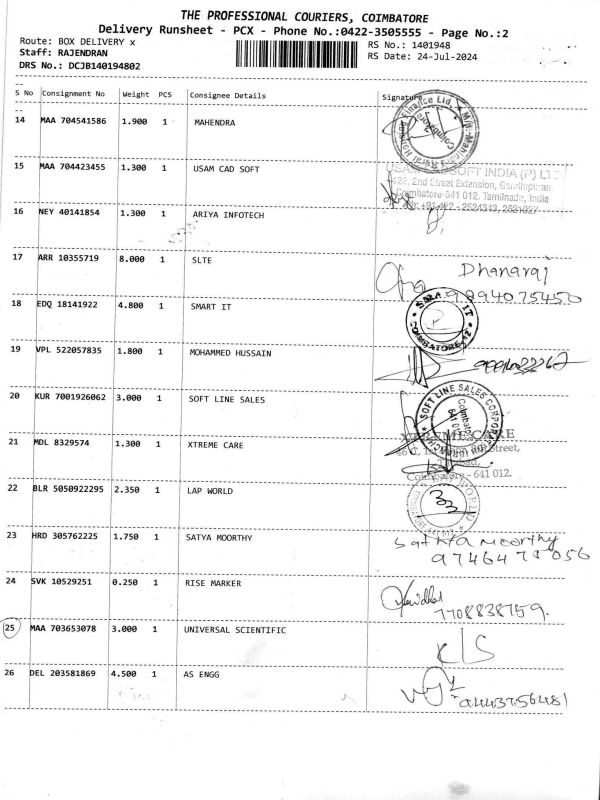 THE PROFESSIONAL COURIERS, COIMBATORE
Delivery Runsheet - PCX - Phone No.:0422-3505555 - Page No.:2
Route: BOX DELIVERY x
RS No.: 1401948
Staff: RAJENDRAN
RS Date: 24-Jul-2024
DRS No.: DCJB140194802
S No Consignment No Weight PCS Consignee Details Signature
14 MAA 704541586 1.900 1 MAHENDRA
15 MAA 704423455 1.300 1 USAM CAD SOFT
SOFT INDIA (P) LTD
122, 2nd Street Extension, Gandhipuram
Coimbatore-641 012. Tamilnadu, India
16 NEY 40141854 1.300 1 ARIYA INFOTECH
17 ARR 10355719 8.000 1 SLTE
Dhanaraj
9894075450
18 EDQ 18141922 4.800 1 SMART IT
19 VPL 522057835 1.800 1 MOHAMMED HUSSAIN
20 KUR 7001926062 3.000 1 SOFT LINE SALES
SOFT LINE SALES CORPORAT
Coimbatore
641 012
21 MDL 8329574 1.300 1 XTREME CARE
XTREME CARE
Street,
Coimbatore - 641 012.
22 BLR 5050922295 2.350 1 LAP WORLD
33
23 HRD 305762225 1.750 1 SATYA MOORTHY
Sathia moorthy
24 SVK 10529251 0.250 1 RISE MARKER
7708838759.
25 MAA 703653078 3.000 1 UNIVERSAL SCIENTIFIC
26 DEL 203581869 4.500 1 AS ENGG
9443756481